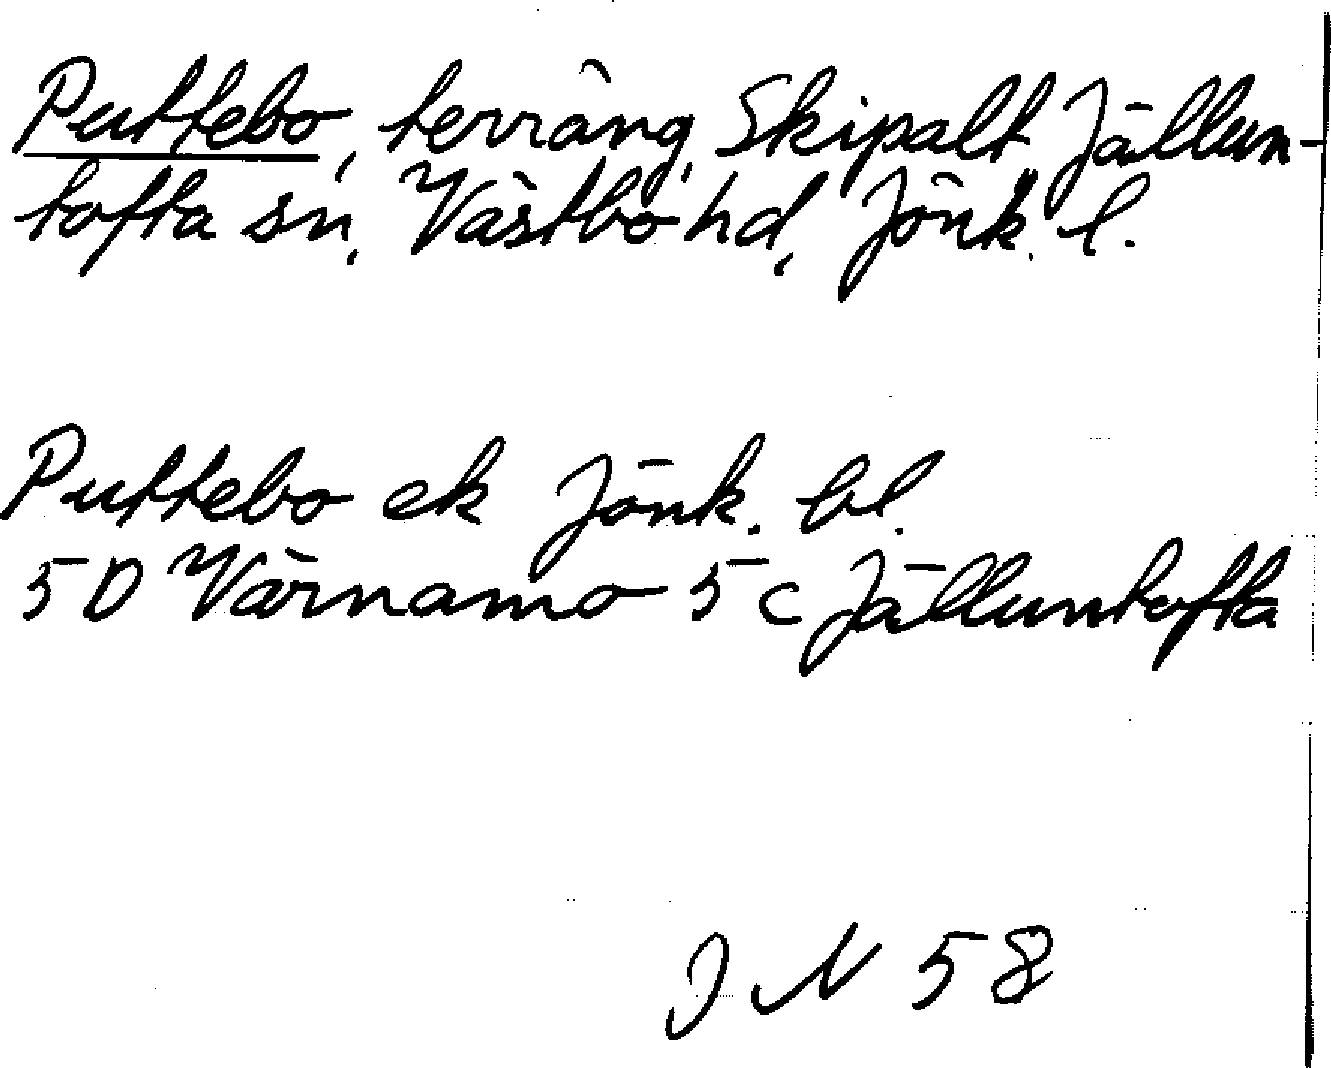 Puttebo, terräng, Skipalt Jällun-
tofta sn, Västbo hd, Jönk. l.
Puttebo ek Jönk. bl.
5D Värnamo 5c Jälluntofta
J N 58